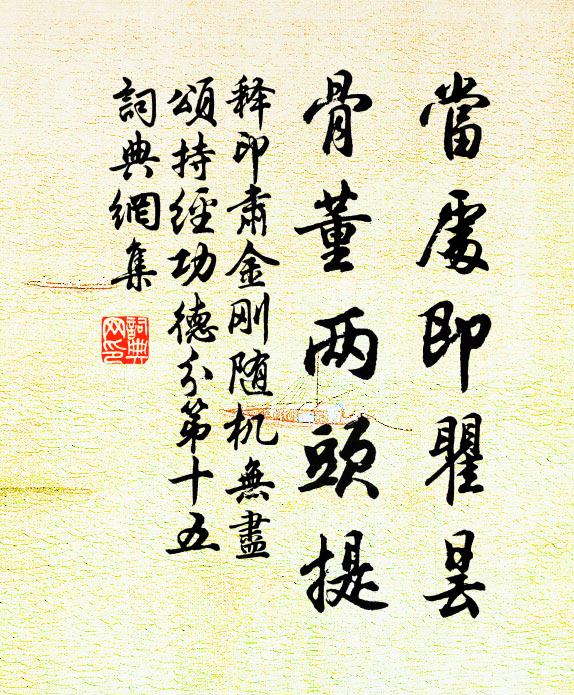 當處即瞿曇
骨董两頭提
释印肃金刚随机無盡
頌持經功德分第十五
詞典網集
詞典網印